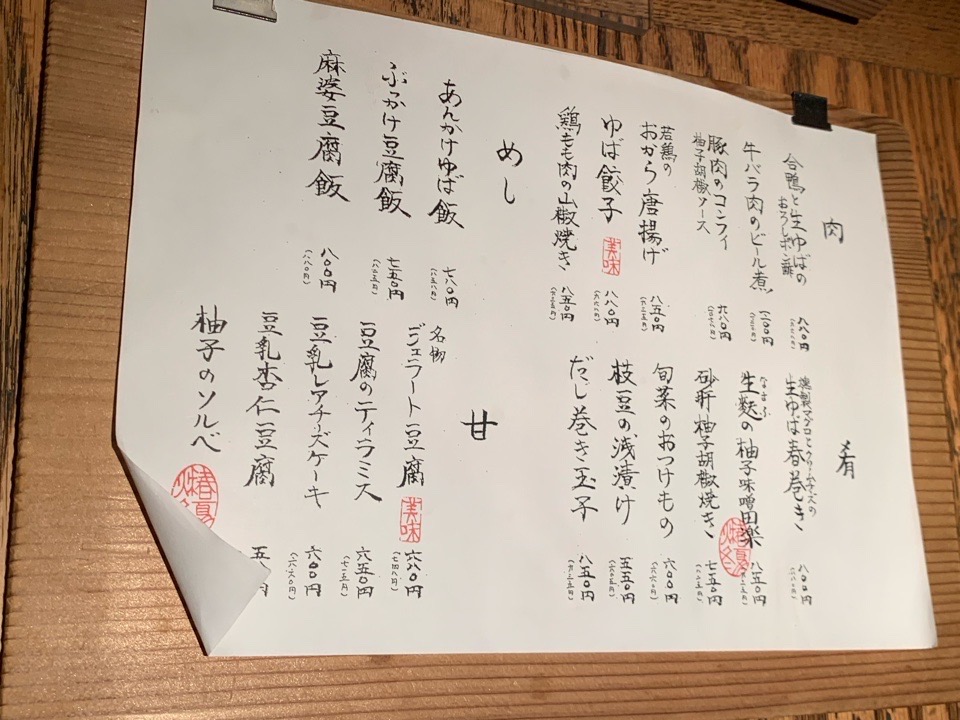 肉
合鴨と生ゆばの
おろしポン酢
八八〇円
牛バラ肉のビール煮
豚肉のコンフィ
柚子胡椒ソース
六八〇円
若鶏の
おから唐揚げ
八五〇円
ゆば餃子
美味
八八〇円
鶏もも肉の山椒焼き
八五〇円
めし
あんかけゆば飯
七八〇円
(八五八円)
ぶっかけ豆腐飯
七五〇円
(八二五円)
麻婆豆腐飯
八〇〇円
(八八〇円)
肴
燻製マグロとクリームチーズの
生ゆば春巻き
八〇〇円
(八八〇円)
なまふ
生麩の柚子味噌田楽
八五〇円
砂肝柚子胡椒焼き
七五〇円
(八二五円)
旬菜のおつけもの
六〇〇円
(六六〇円)
枝豆の浅漬け
五五〇円
(六〇五円)
だし巻き玉子
八五〇円
(九三五円)
甘
名物
ジェラート豆腐
美味
六八〇円
(七四八円)
豆腐のティラミス
六五〇円
(七一五円)
豆乳レアチーズケーキ
六〇〇円
(六六〇円)
豆乳杏仁豆腐
柚子のソルベ